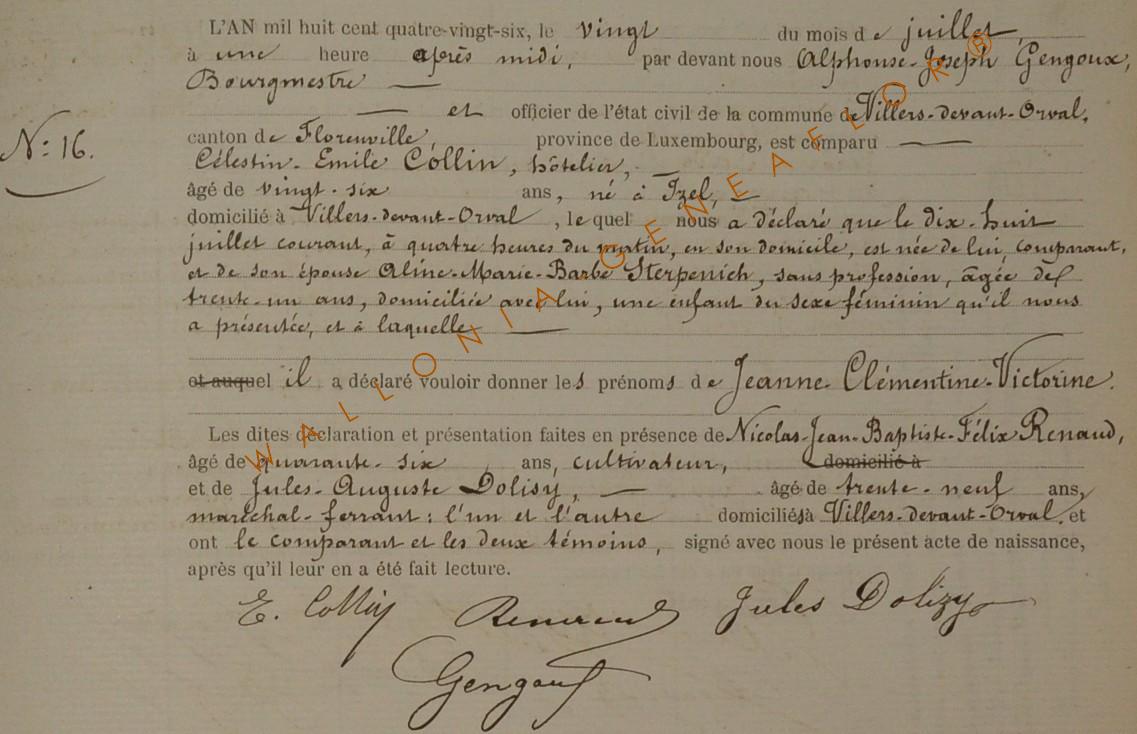 L'AN mil huit cent quatre-vingt-six, le vingt du mois de juillet,
à une heure après midi, par devant nous Alphonse-Joseph Gengoux,
Bourgmestre —
— et officier de l'état civil de la commune de Villers-devant-Orval,
N: 16.
canton de Florenville, province de Luxembourg, est comparu —
Célestin-Emile Collin, hôtelier, —
âgé de vingt-six ans, né à Izel, —
domicilié à Villers-devant-Orval, lequel nous a déclaré que le dix-huit
juillet courant, à quatre heures du matin, en son domicile, est née de lui, comparant,
et de son épouse Aline-Marie-Barbe Sterpenich, sans profession, âgée de
trente-un ans, domiciliée avec lui, une enfant du sexe féminin qu'il nous
a présentée, et à laquelle —
et auquel il a déclaré vouloir donner les prénoms de Jeanne-Clémentine-Victorine.
Les dites déclaration et présentation faites en présence de Nicolas-Jean-Baptiste-Félix Renaud,
âgé de quarante-six ans, cultivateur, domicilié à
et de Jules-Auguste Dolisy, — âgé de trente-neuf ans,
maréchal-ferrant: l'un et l'autre domiciliés à Villers-devant-Orval, et
ont le comparant et les deux témoins, signé avec nous le présent acte de naissance,
après qu'il leur en a été fait lecture.
E. Collin Renaud Jules Dolizy
Gengoux
WALLONIA GENEAFLOR®